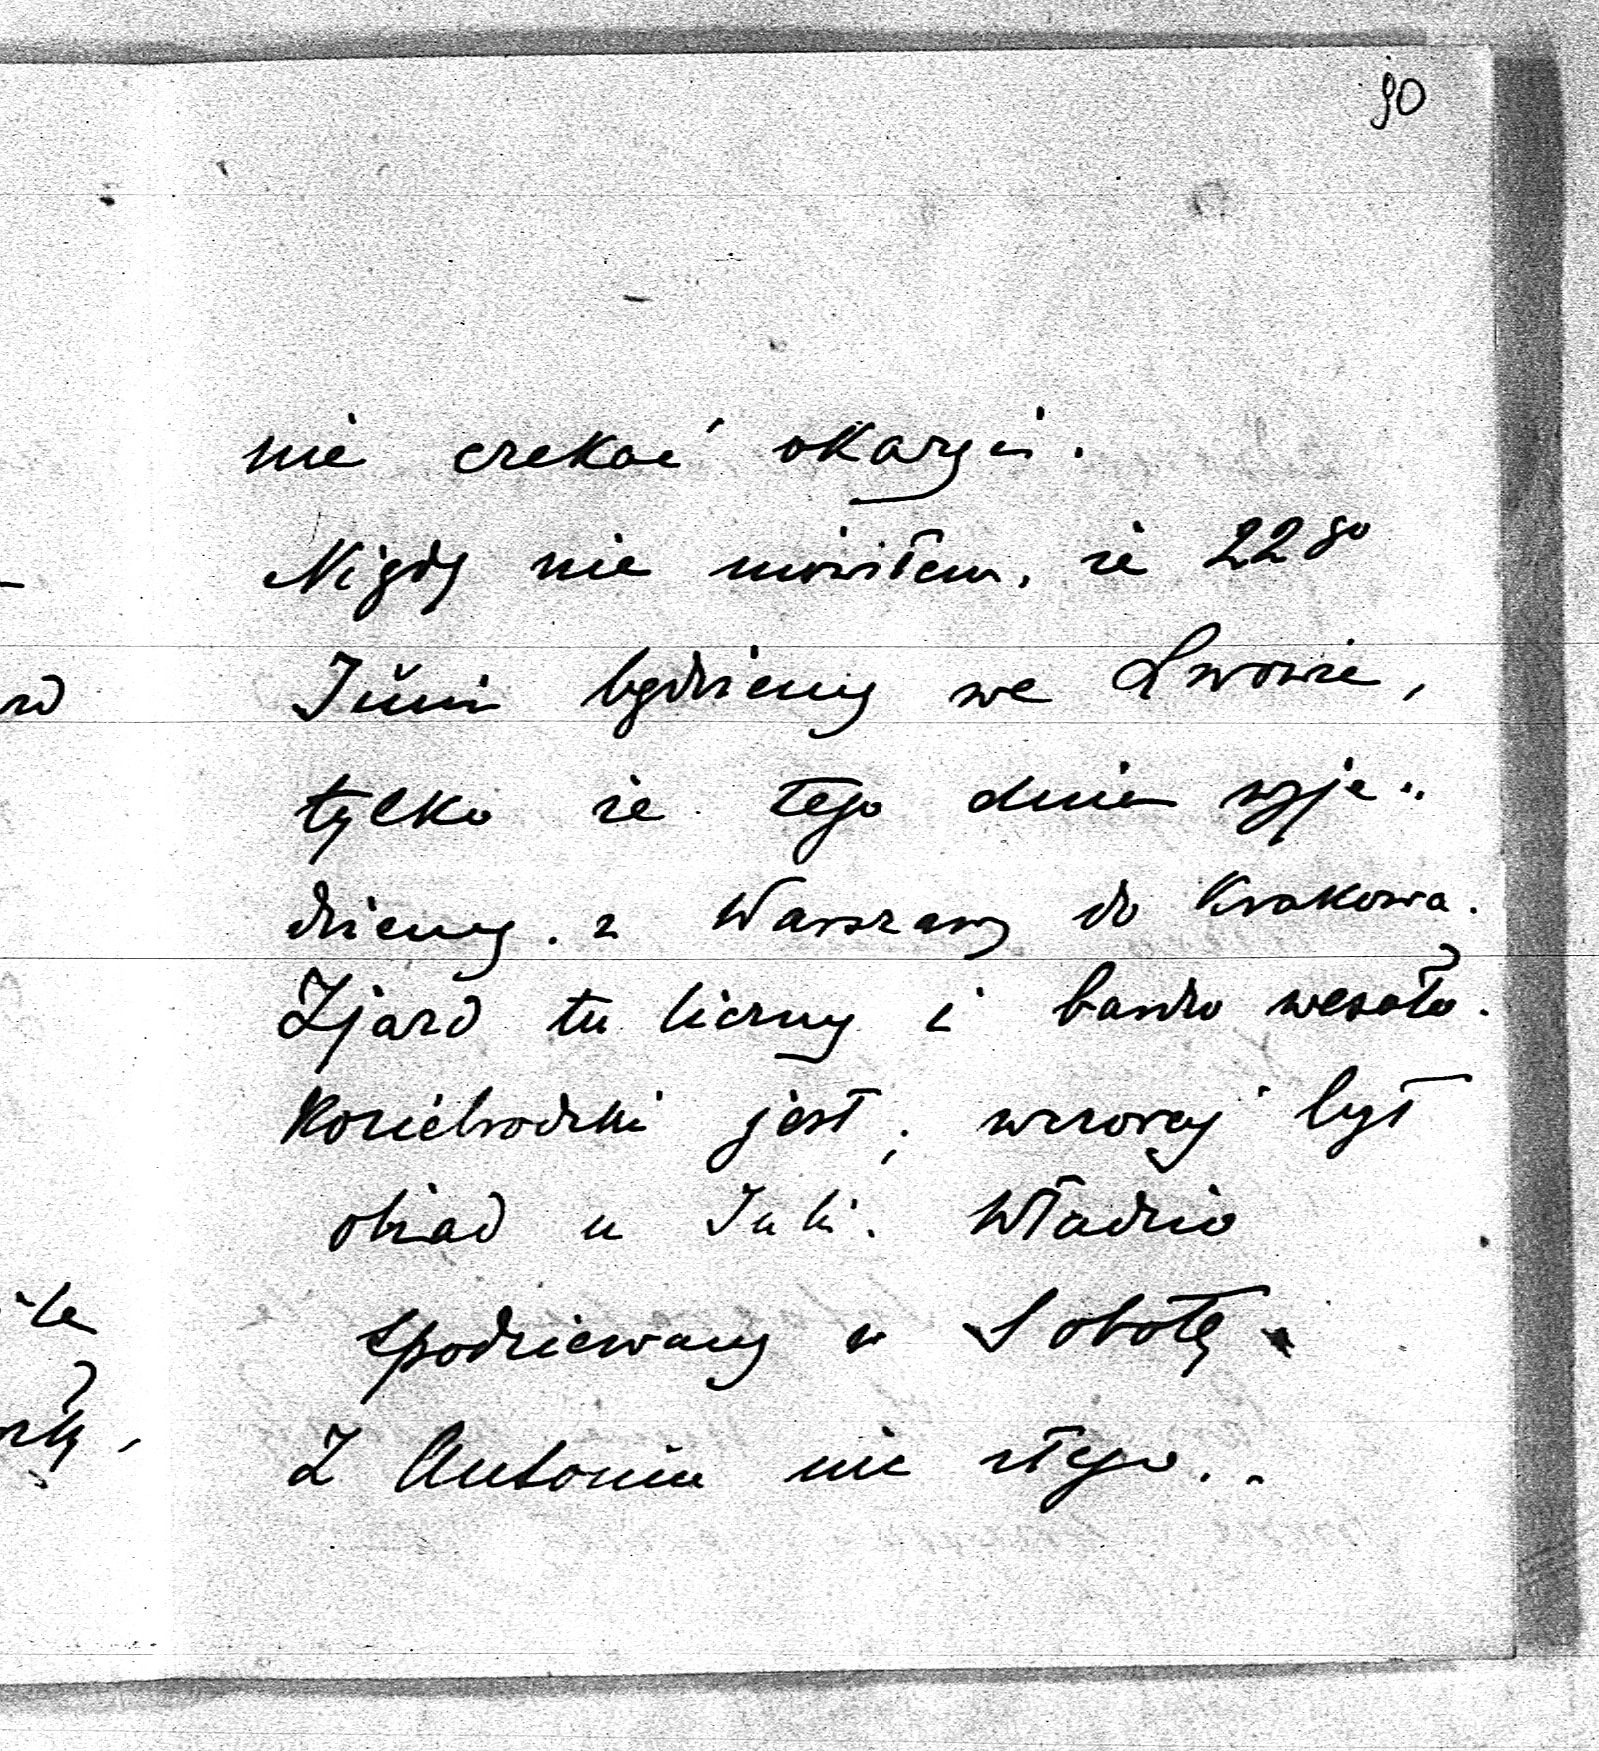 90
nie czekać okazyi.
Nigdy nie mówiłem, że 22go
Juni będziemy we Lwowie,
tylko że tego dnia wyje„
dziemy. z Warszawy do Krakowa.
Zjazd tu liczny i bardzo wesoło.
Koziebrodzki jest; wczoraj był
obiad u Julii. Władzio
spodziewany w Sobotę.
Z Antonin nic złego..